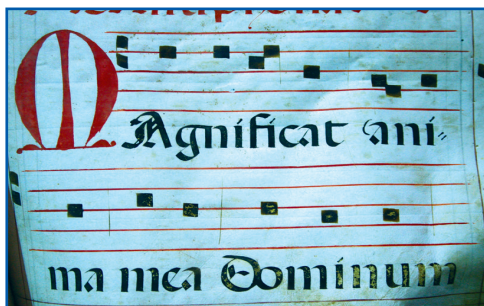 MAgnificat ani=
ma mea Dominum